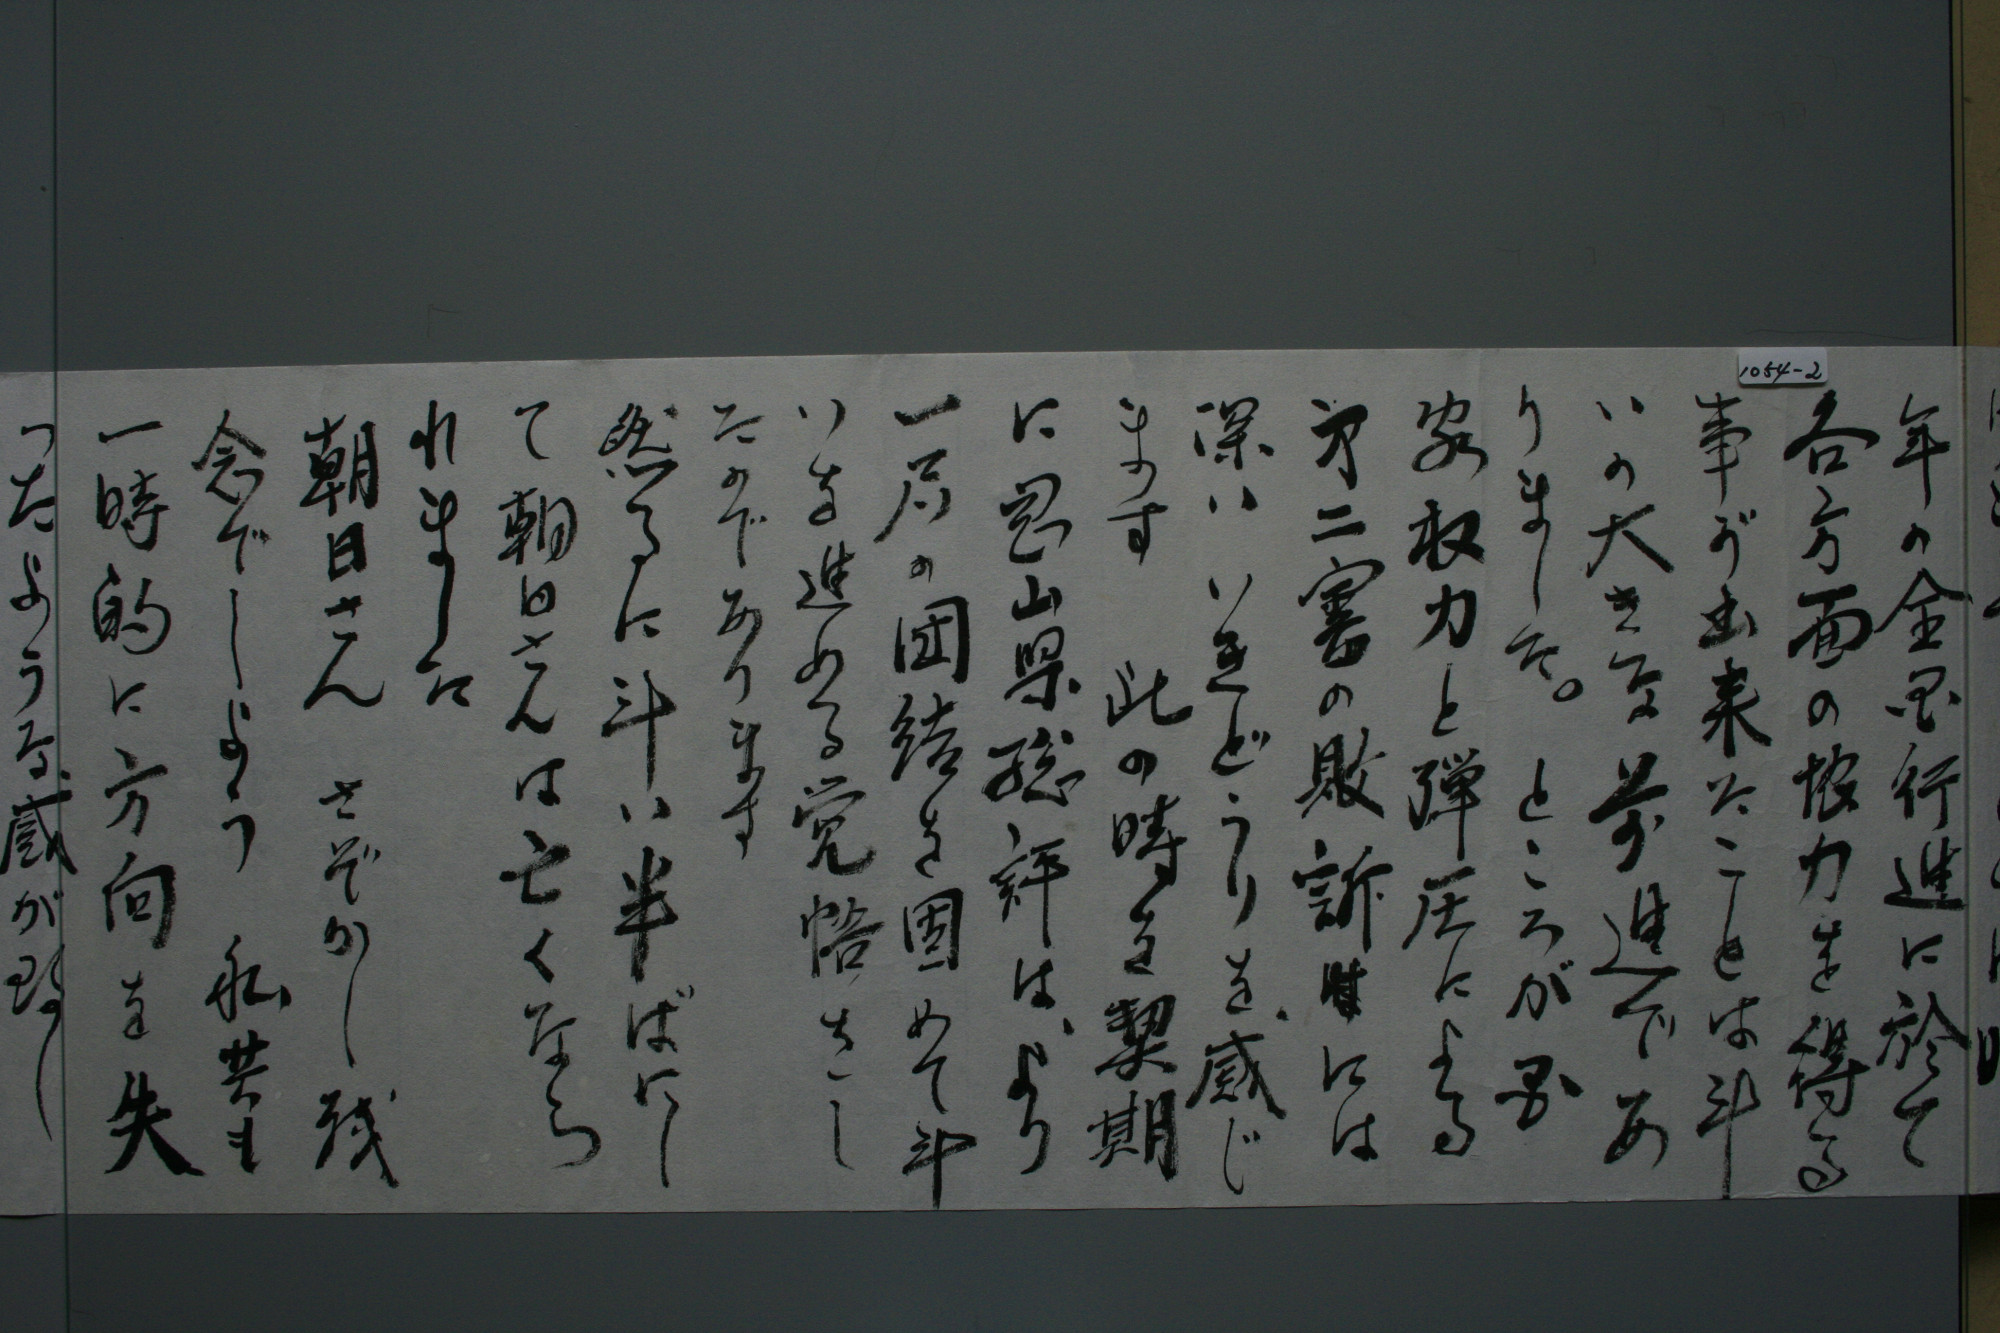 1054-2
年の全国行進に於て
各方面の協力を得る
事が出来たことは斗
いの大きな前進であ
りました。ところが国
家权力と弾圧による
第二審の敗訴時には
深いいきどうりを感じ
ます 此の時を契期
に岡山県総評は、より
一层の団結を固めて斗
いを進める覚悟さし
たのであります
然るに斗い半ばにし
て朝日さんは亡くなら
れました
朝日さん さぞかし残
念でしよう 私共も
一時的に方向を失
ったような感が致し